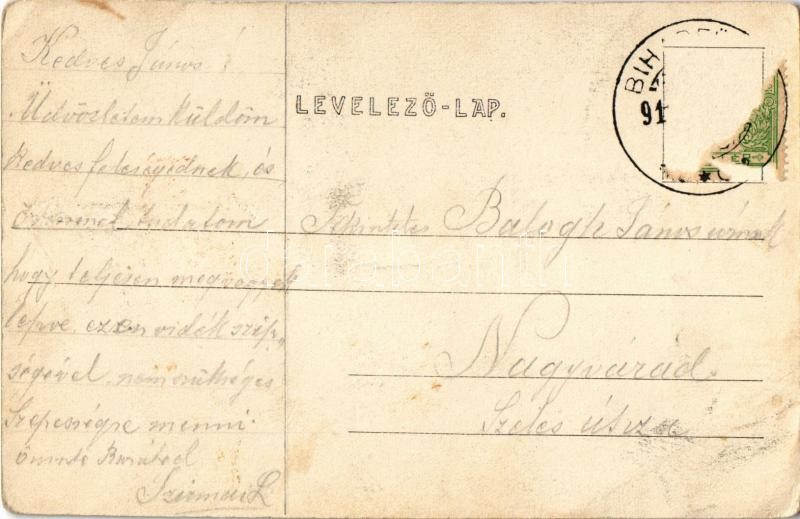 Kedves János!
Üdvözletem küldöm
kedves feleségednek, és
örömmel tudatom
hogy teljesen meg vagyok
lepve ezen vidék szép-
ségével. nem szükséges
Szepességre menni.
Barátod
Szirmai L
LEVELEZŐ-LAP.
BIH
91
Balogh János úrnak
Nagyvárad
Széles útza